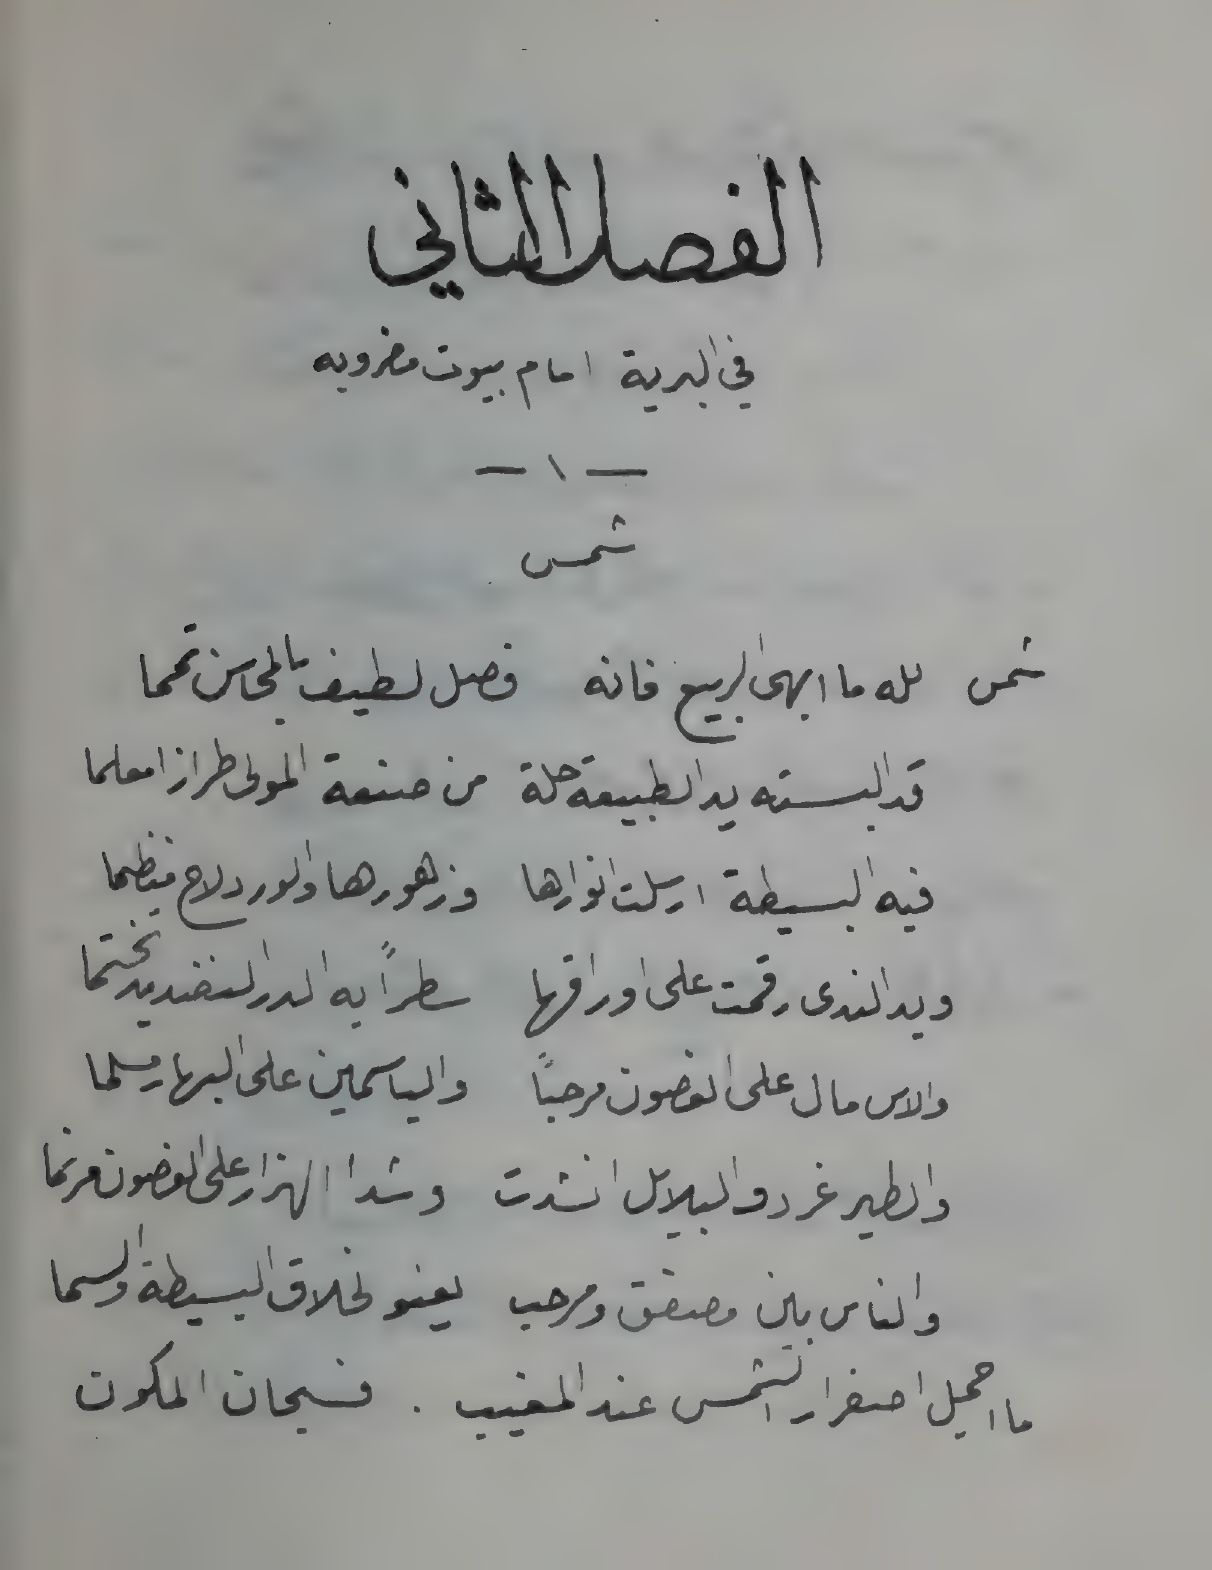 الفصل الثاني
في البرية امام بيوت مضروبه
— ١ —
شمس
شمس لله ما ابهى الربيع فانه فصل لطيف بالمحاسن تمما
قد البسته يد الطبيعة حلة من صنعة المولى طرازا معلما
فيه البسيطة ارسلت انوارها وزهورها والورد لاح منظما
ويد الندى رقمت على اوراقها سطراً به الدر النضيد تختما
والاس مال على الغصون مرحباً والياسمين على البها مسلما
والطير غرد والبلابل انشدت وشدا الهزار على الغصون مرنما
والناس بين مصفق ومرحب يعنو لخلاق البسيطة والسما
ما اجمل اصفرار الشمس عند المغيب . فسبحان المكون